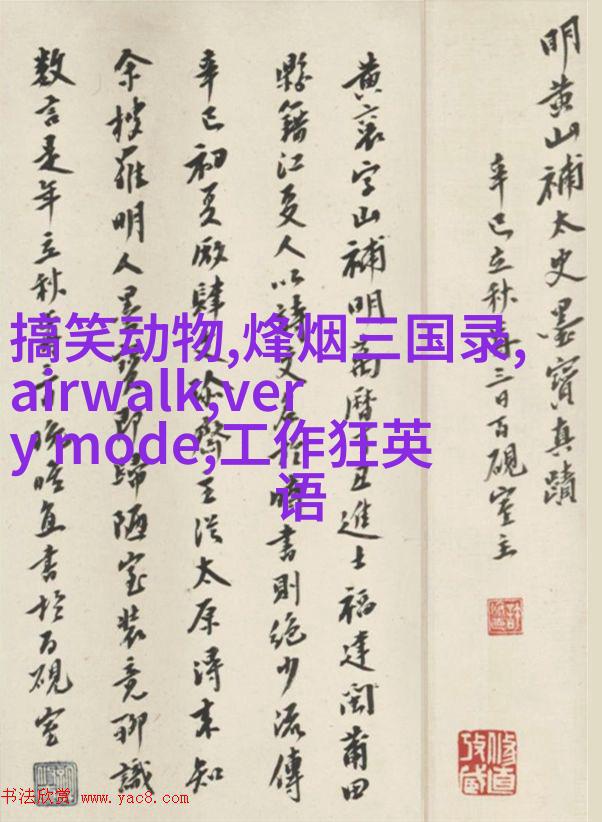 明黄山補太史墨寶真蹟
辛巳立秋三日百硯室主
黄字山補明曆丑進士福建閩莆田
縣籍江夏人以詩文於時書則絶少流傳
辛巳初夏厰肆王從太原得来知
余搜羅明人墨即歸陋室装竟聊識
數言是年立秋書於百硯室
搞笑动物,烽烟三国录,
airwalk,ver
y mode,工作狂英
语
书法欣赏 www.yac8.com